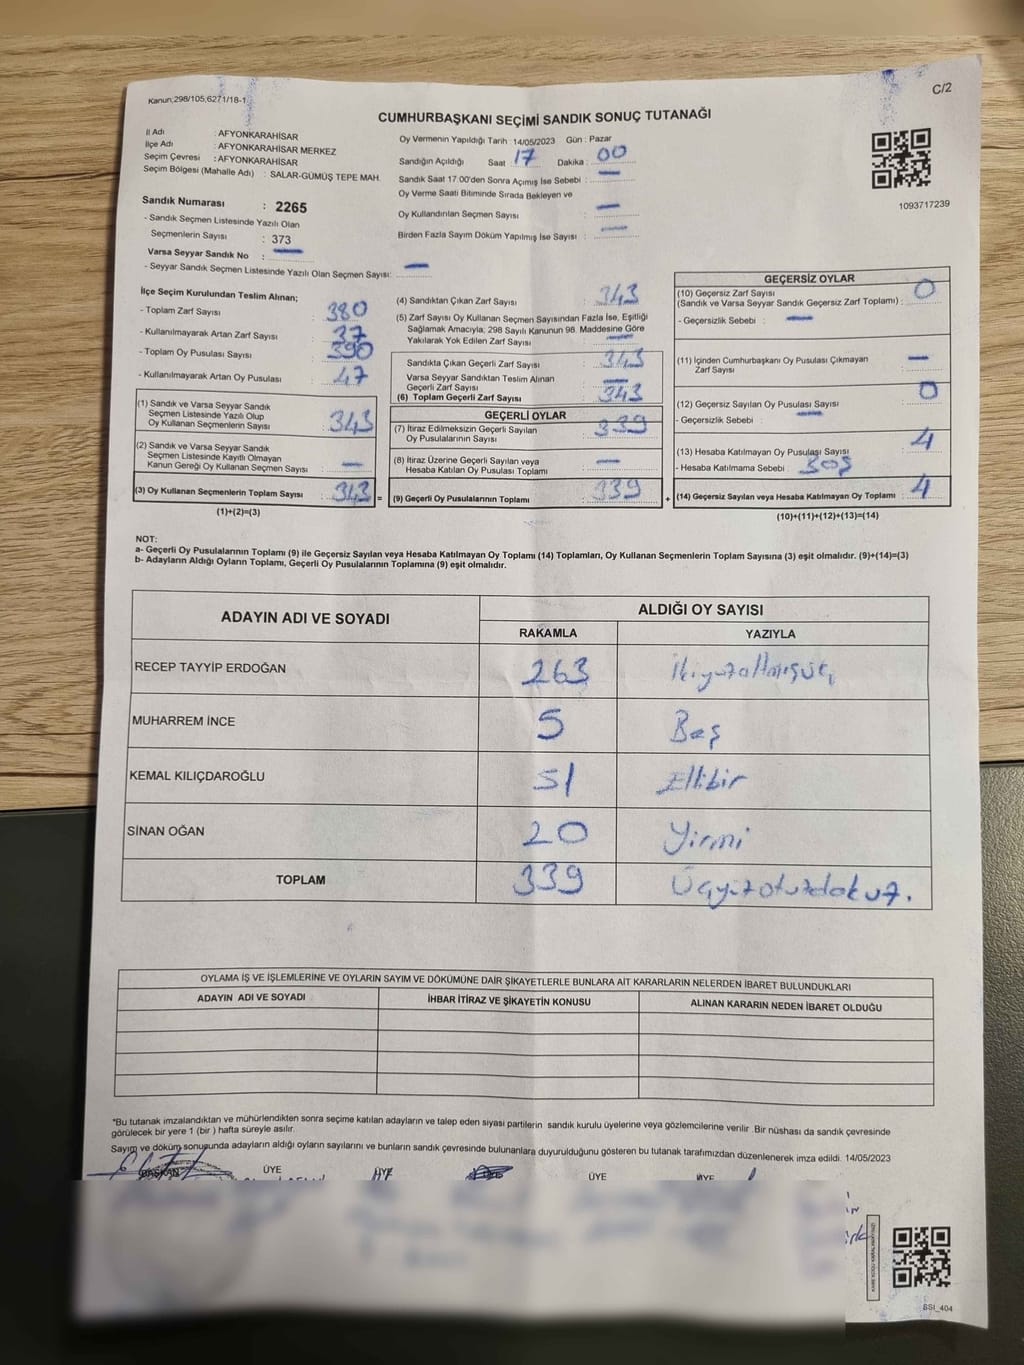 Kanun;298/105,6271/18-1
C/2
CUMHURBAŞKANI SEÇİMİ SANDIK SONUÇ TUTANAĞI
İl Adı : AFYONKARAHİSAR
İlçe Adı : AFYONKARAHİSAR MERKEZ
Seçim Çevresi : AFYONKARAHİSAR
Seçim Bölgesi (Mahalle Adı) : SALAR-GÜMÜŞ TEPE MAH.
Oy Vermenin Yapıldığı Tarih 14/05/2023 Gün : Pazar
Sandığın Açıldığı Saat 17 Dakika : 00
Sandık Saat 17.00'den Sonra Açımış İse Sebebi : —
Oy Verme Saati Bitiminde Sırada Bekleyen ve
Oy Kullandırılan Seçmen Sayısı —
Birden Fazla Sayım Döküm Yapılmış İse Sayısı : —
1093717239
Sandık Numarası : 2265
- Sandık Seçmen Listesinde Yazılı Olan
Seçmenlerin Sayısı : 373
Varsa Seyyar Sandık No : —
- Seyyar Sandık Seçmen Listesinde Yazılı Olan Seçmen Sayısı: —
İlçe Seçim Kurulundan Teslim Alınan;
- Toplam Zarf Sayısı : 380
- Kullanılmayarak Artan Zarf Sayısı : 37
- Toplam Oy Pusulası Sayısı : 390
- Kullanılmayarak Artan Oy Pusulası : 47
(1) Sandık ve Varsa Seyyar Sandık
Seçmen Listesinde Yazılı Olup
Oy Kullanan Seçmenlerin Sayısı : 343
(2) Sandık ve Varsa Seyyar Sandık
Seçmen Listesinde Kayıtlı Olmayan
Kanun Gereği Oy Kullanan Seçmen Sayısı —
(3) Oy Kullanan Seçmenlerin Toplam Sayısı : 343 =
(1)+(2)=(3)
(4) Sandıktan Çıkan Zarf Sayısı : 343
(5) Zarf Sayısı Oy Kullanan Seçmen Sayısından Fazla İse, Eşitliği
Sağlamak Amacıyla, 298 Sayılı Kanunun 98. Maddesine Göre
Yakılarak Yok Edilen Zarf Sayısı : —
Sandıkta Çıkan Geçerli Zarf Sayısı : 343
Varsa Seyyar Sandıktan Teslim Alınan
Geçerli Zarf Sayısı —
(6) Toplam Geçerli Zarf Sayısı : 343
GEÇERLİ OYLAR
(7) İtiraz Edilmeksizin Geçerli Sayılan
Oy Pusulalarının Sayısı : 339
(8) İtiraz Üzerine Geçerli Sayılan veya
Hesaba Katılan Oy Pusulası Toplamı —
(9) Geçerli Oy Pusulalarının Toplamı : 339 +
GEÇERSİZ OYLAR
(10) Geçersiz Zarf Sayısı
(Sandık ve Varsa Seyyar Sandık Geçersiz Zarf Toplamı) : 0
- Geçersizlik Sebebi : —
(11) İçinden Cumhurbaşkanı Oy Pusulası Çıkmayan
Zarf Sayısı —
(12) Geçersiz Sayılan Oy Pusulası Sayısı 0
- Geçersizlik Sebebi : —
(13) Hesaba Katılmayan Oy Pusulası Sayısı 4
- Hesaba Katılmama Sebebi : BOŞ
(14) Geçersiz Sayılan veya Hesaba Katılmayan Oy Toplamı : 4
(10)+(11)+(12)+(13)=(14)
NOT:
a- Geçerli Oy Pusulalarının Toplamı (9) ile Geçersiz Sayılan veya Hesaba Katılmayan Oy Toplamı (14) Toplamları, Oy Kullanan Seçmenlerin Toplam Sayısına (3) eşit olmalıdır. (9)+(14)=(3)
b- Adayların Aldığı Oyların Toplamı, Geçerli Oy Pusulalarının Toplamına (9) eşit olmalıdır.
ADAYIN ADI VE SOYADI ALDIĞI OY SAYISI
RAKAMLA YAZIYLA
RECEP TAYYİP ERDOĞAN 263 İkiyüzaltmışüç
MUHARREM İNCE 5 Beş
KEMAL KILIÇDAROĞLU 51 Ellibir
SİNAN OĞAN 20 Yirmi
TOPLAM 339 Üçyüzotuzdokuz.
OYLAMA İŞ VE İŞLEMLERİNE VE OYLARIN SAYIM VE DÖKÜMÜNE DAİR ŞİKAYETLERLE BUNLARA AİT KARARLARIN NELERDEN İBARET BULUNDUKLARI
ADAYIN ADI VE SOYADI İHBAR İTİRAZ VE ŞİKAYETİN KONUSU ALINAN KARARIN NEDEN İBARET OLDUĞU
*Bu tutanak imzalandıktan ve mühürlendikten sonra seçime katılan adayların ve talep eden siyasi partilerin sandık kurulu üyelerine veya gözlemcilerine verilir .Bir nüshası da sandık çevresinde
görülecek bir yere 1 (bir ) hafta süreyle asılır.
Sayım ve döküm sonuçunda adayların aldığı oyların sayılarını ve bunların sandık çevresinde bulunanlara duyurulduğunu gösteren bu tutanak tarafımızdan düzenlenerek imza edildi. 14/05/2023
BAŞKAN ÜYE ÜYE ÜYE ÜYE
BSI_404